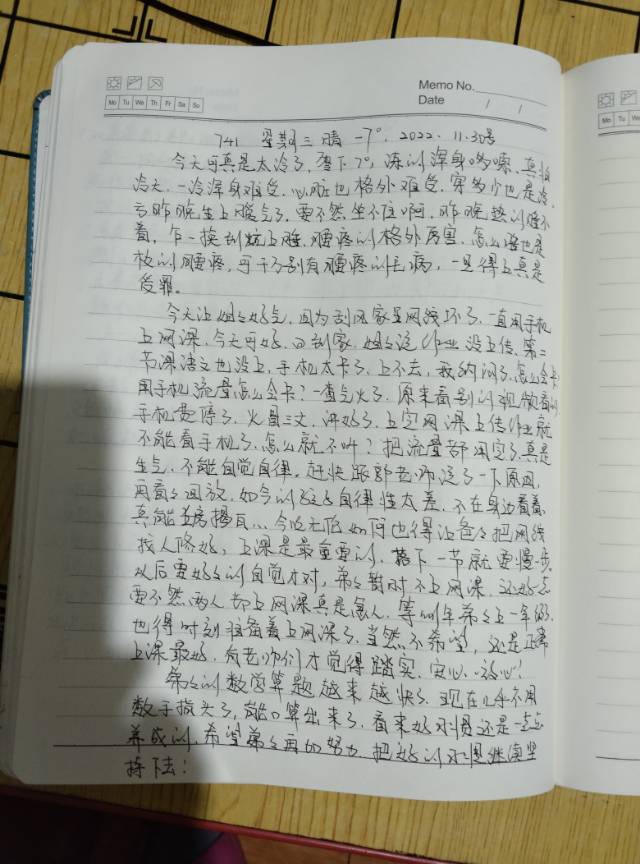 Memo No.
Date / /
Mo Tu We Th Fr Sa Su
741 星期三 晴 -7°. 2022. 11.30号
今天可真是太冷了, 零下7°, 冻的浑身哆嗦, 真怕
冷天. 一冷浑身难受, 心脏也格外难受, 穿多少也是冷,
亏昨晚生上暖气了, 要不然坐不住啊, 昨晚热的睡不
着, 乍一挨到炕上睡, 腰疼的格外厉害, 怎么 也是
板的腰疼, 可千万别有腰疼的毛病, 一旦得上真是
受罪。
今天让姐姐好气, 因为刮风家里网线坏了, 一直用手机
上网课, 今天可好, 回到家, 姐姐说作业没上传, 第二
节课语文也没上, 手机太卡了, 上不去, 我纳闷了, 怎么会卡
用手机流量怎么会卡? 一查气火了, 原来看别的视频看的
手机费停了, 火冒三丈, 讲好了, 上完网课上传作业就
不能看手机了, 怎么就不听? 把流量都用完了, 真是
生气, 不能自觉自律, 赶快跟郭老师说了一下原因,
再看看回放, 如今的孩子自律性太差, 不在身边看着,
真能 房揭瓦... 今晚无论如何也得让爸爸把网线
找人修好, 上课是最重要的, 落下一节就要慢一步,
以后要好好的自觉才对, 弟弟暂时不上网课, 还好点
要不然两人都上网课真是急人, 等明年弟弟上一年级,
也得时刻准备着上网课了, 当然不希望, 还是正常
上课最好, 有老师们才觉得踏实, 安心, 放心!
弟弟的数学算题越来越快了, 现在几乎不用
数手指头了, 能口算出来了, 看来好习惯还是一点点
养成的, 希望弟弟再加努力, 把好的习惯继续坚
持下去!